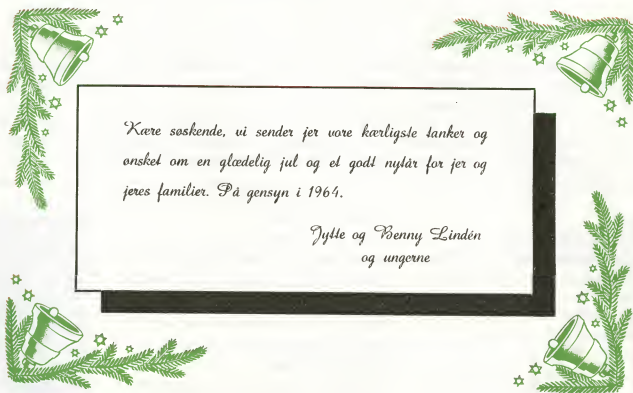 Kære søskende, vi sender jer vore kærligste tanker og
ønsket om en glædelig jul og et godt nytår for jer og
jeres familier. På gensyn i 1964.
Jytte og Benny Lindén
og ungerne